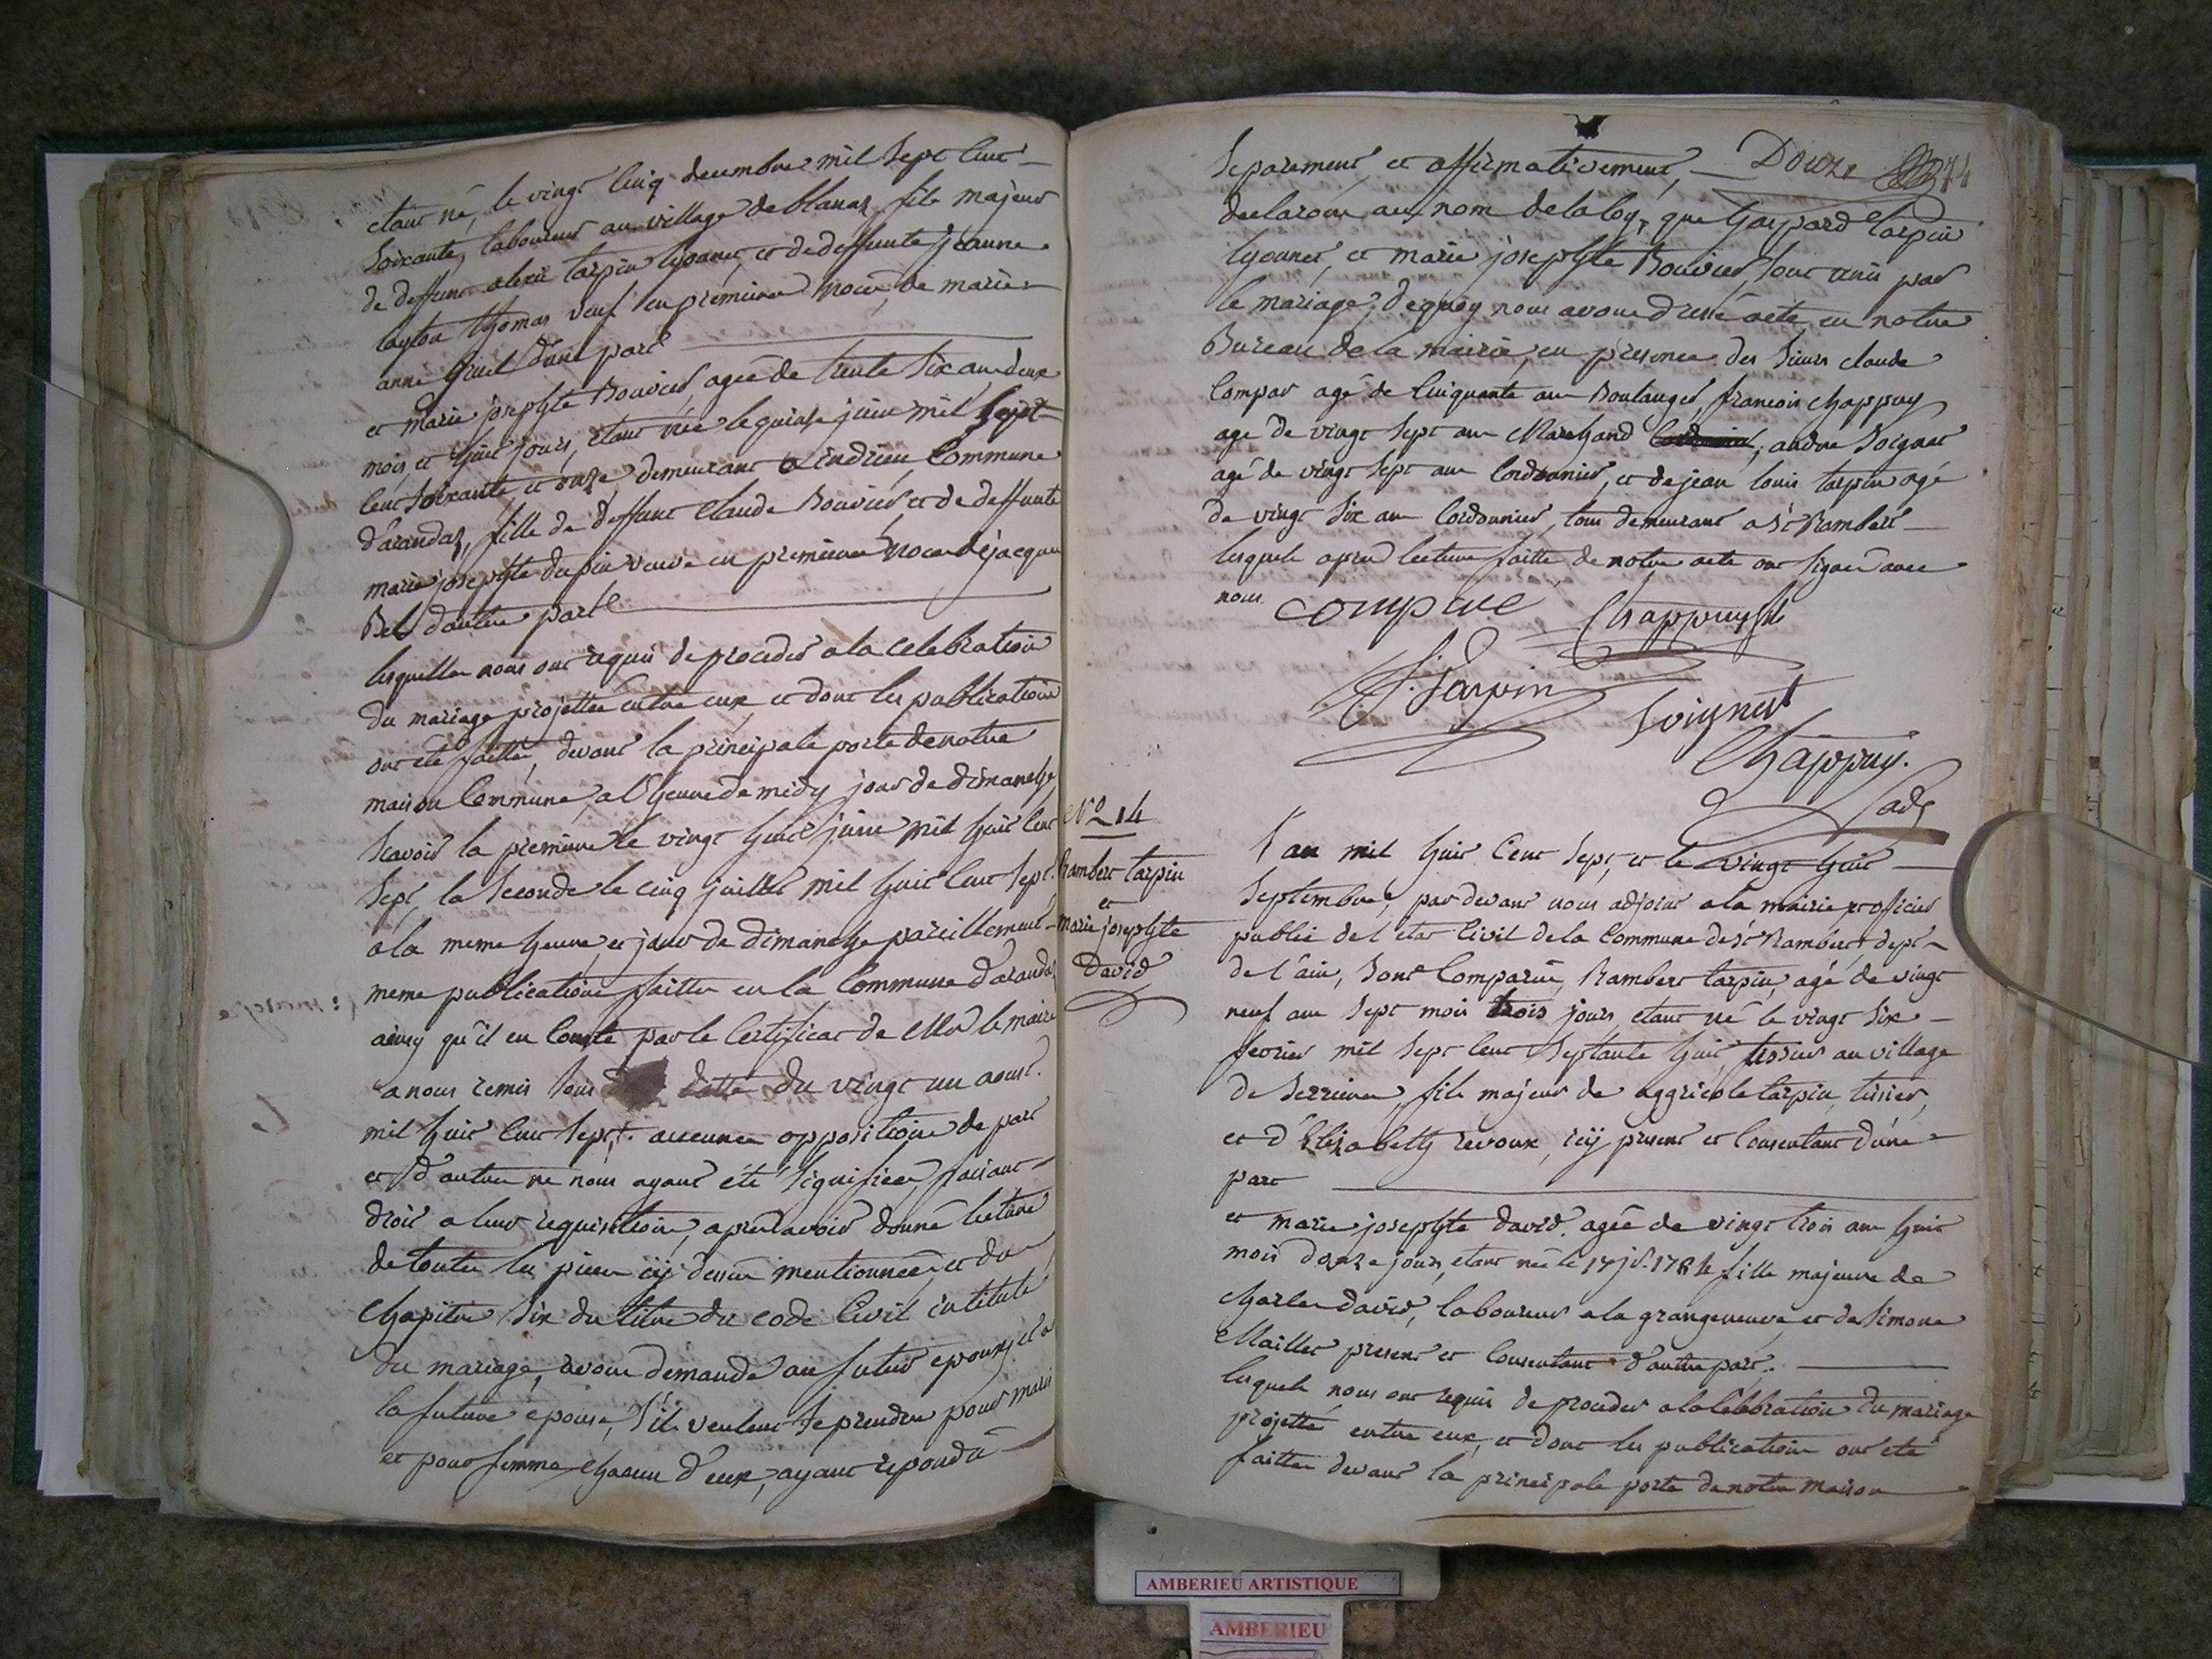 etant né, le vingt cinq decembre mil sept cent
soixante, laboureur au village de blanaz, fils majeur
de deffunt albin tarpin lyonnet, et de deffunte jeanne
thomas veuf en premieres noces de marie
anne d'une part
et marie josephte Bouvier, agée de trente six ans deux
mois et huit jours, étant née le quinze juin mil sept
cent soixante et onze demeurant a indrieu Commune
d'arandaz, fille de deffunt Claude Bouvier et de deffunte
marie josephte dupin veuve en premieres noces de jacques
Bel d'autre part
lesquelles nous ont requis de proceder a la celebration
du mariage projetté entre eux et dont les publications
ont été faittes, devant la principale porte de notre
maison Commune, a l'heure de midy jour de dimanche
scavoir la premiere le vingt huit juin mil huit cent
sept, la seconde le cinq juillet mil huit cent sept.
a la meme heure, et jour de dimanche pareillement
meme publications faittes en la Commune d'arandaz
ainsy qu'il en Conste par le Certificat de Mr le maire
a nous remis sous datte du vingt un aoust.
mil huit cent sept. aucunes oppositions de part
et d'autre ne nous ayant été signifiées, faisant
droit a leur requisition, apres avoir donné lecture
de toutes les pieces cij dessus mentionnées, et du
chapitre six du titre du code Civil intitulé
du mariage, avons demandé au futur epoux, et a
la future epouse, s'ils veulent se prendre pour mari
et pour femme chacun d'eux, ayant repondu
Separement, et affirmativement, Douze 74
declarons au nom de la loy, que Gaspard tarpin
lyonnet, et marie josephte Bouvier, sont unis par
le mariage, de quoy nous avons dressé acte, en notre
Bureau de la mairie, en presence des sieurs claude
Compar agé de Cinquante ans Boulanger, francois Chappuy
agé de vingt sept ans Marchand, andre soignet
agé de vingt sept ans Cordonnier, et de jean louis tarpin agé
de vingt six ans Cordonnier, tous demeurant a St Rambert
lesquels apres lecture faitte de notre acte ont signer avec
nous. compare Chappuy fils
Tarpin
Soignest
Chappuy.
adj
No 14
Rambert tarpin
et
Marie josephte
David
L'an mil huit Cent Sept, et le vingt huit
Septembre, par devant nous adjoint a la mairie et officier
public de l'etat Civil de la Commune de St Rambert, dept
de l'ain, sont Comparus, Rambert tarpin, agé de vingt
neuf ans sept mois trois jours, etant né le vingt six
fevrier mil sept cent septante huit, tissier au village
de Serrieres, fils majeur de aggricole tarpin, tissier,
et d'Elizabeth revoux, icy present et Consentant d'une
part
et marie josephte david, agée de vingt trois ans huit
mois douze jours, etant née le 17 jr. 1784 fille majeure de
Charles david, laboureur a la grangeneuve, et de simone
Maillet present et Consentant d'autre part.
lesquels nous ont requis de proceder a la Celebration du mariage
projetté entre eux, et dont les publications ont été
faittes devant la principale porte de notre maison
AMBERIEU ARTISTIQUE
AMBERIEU